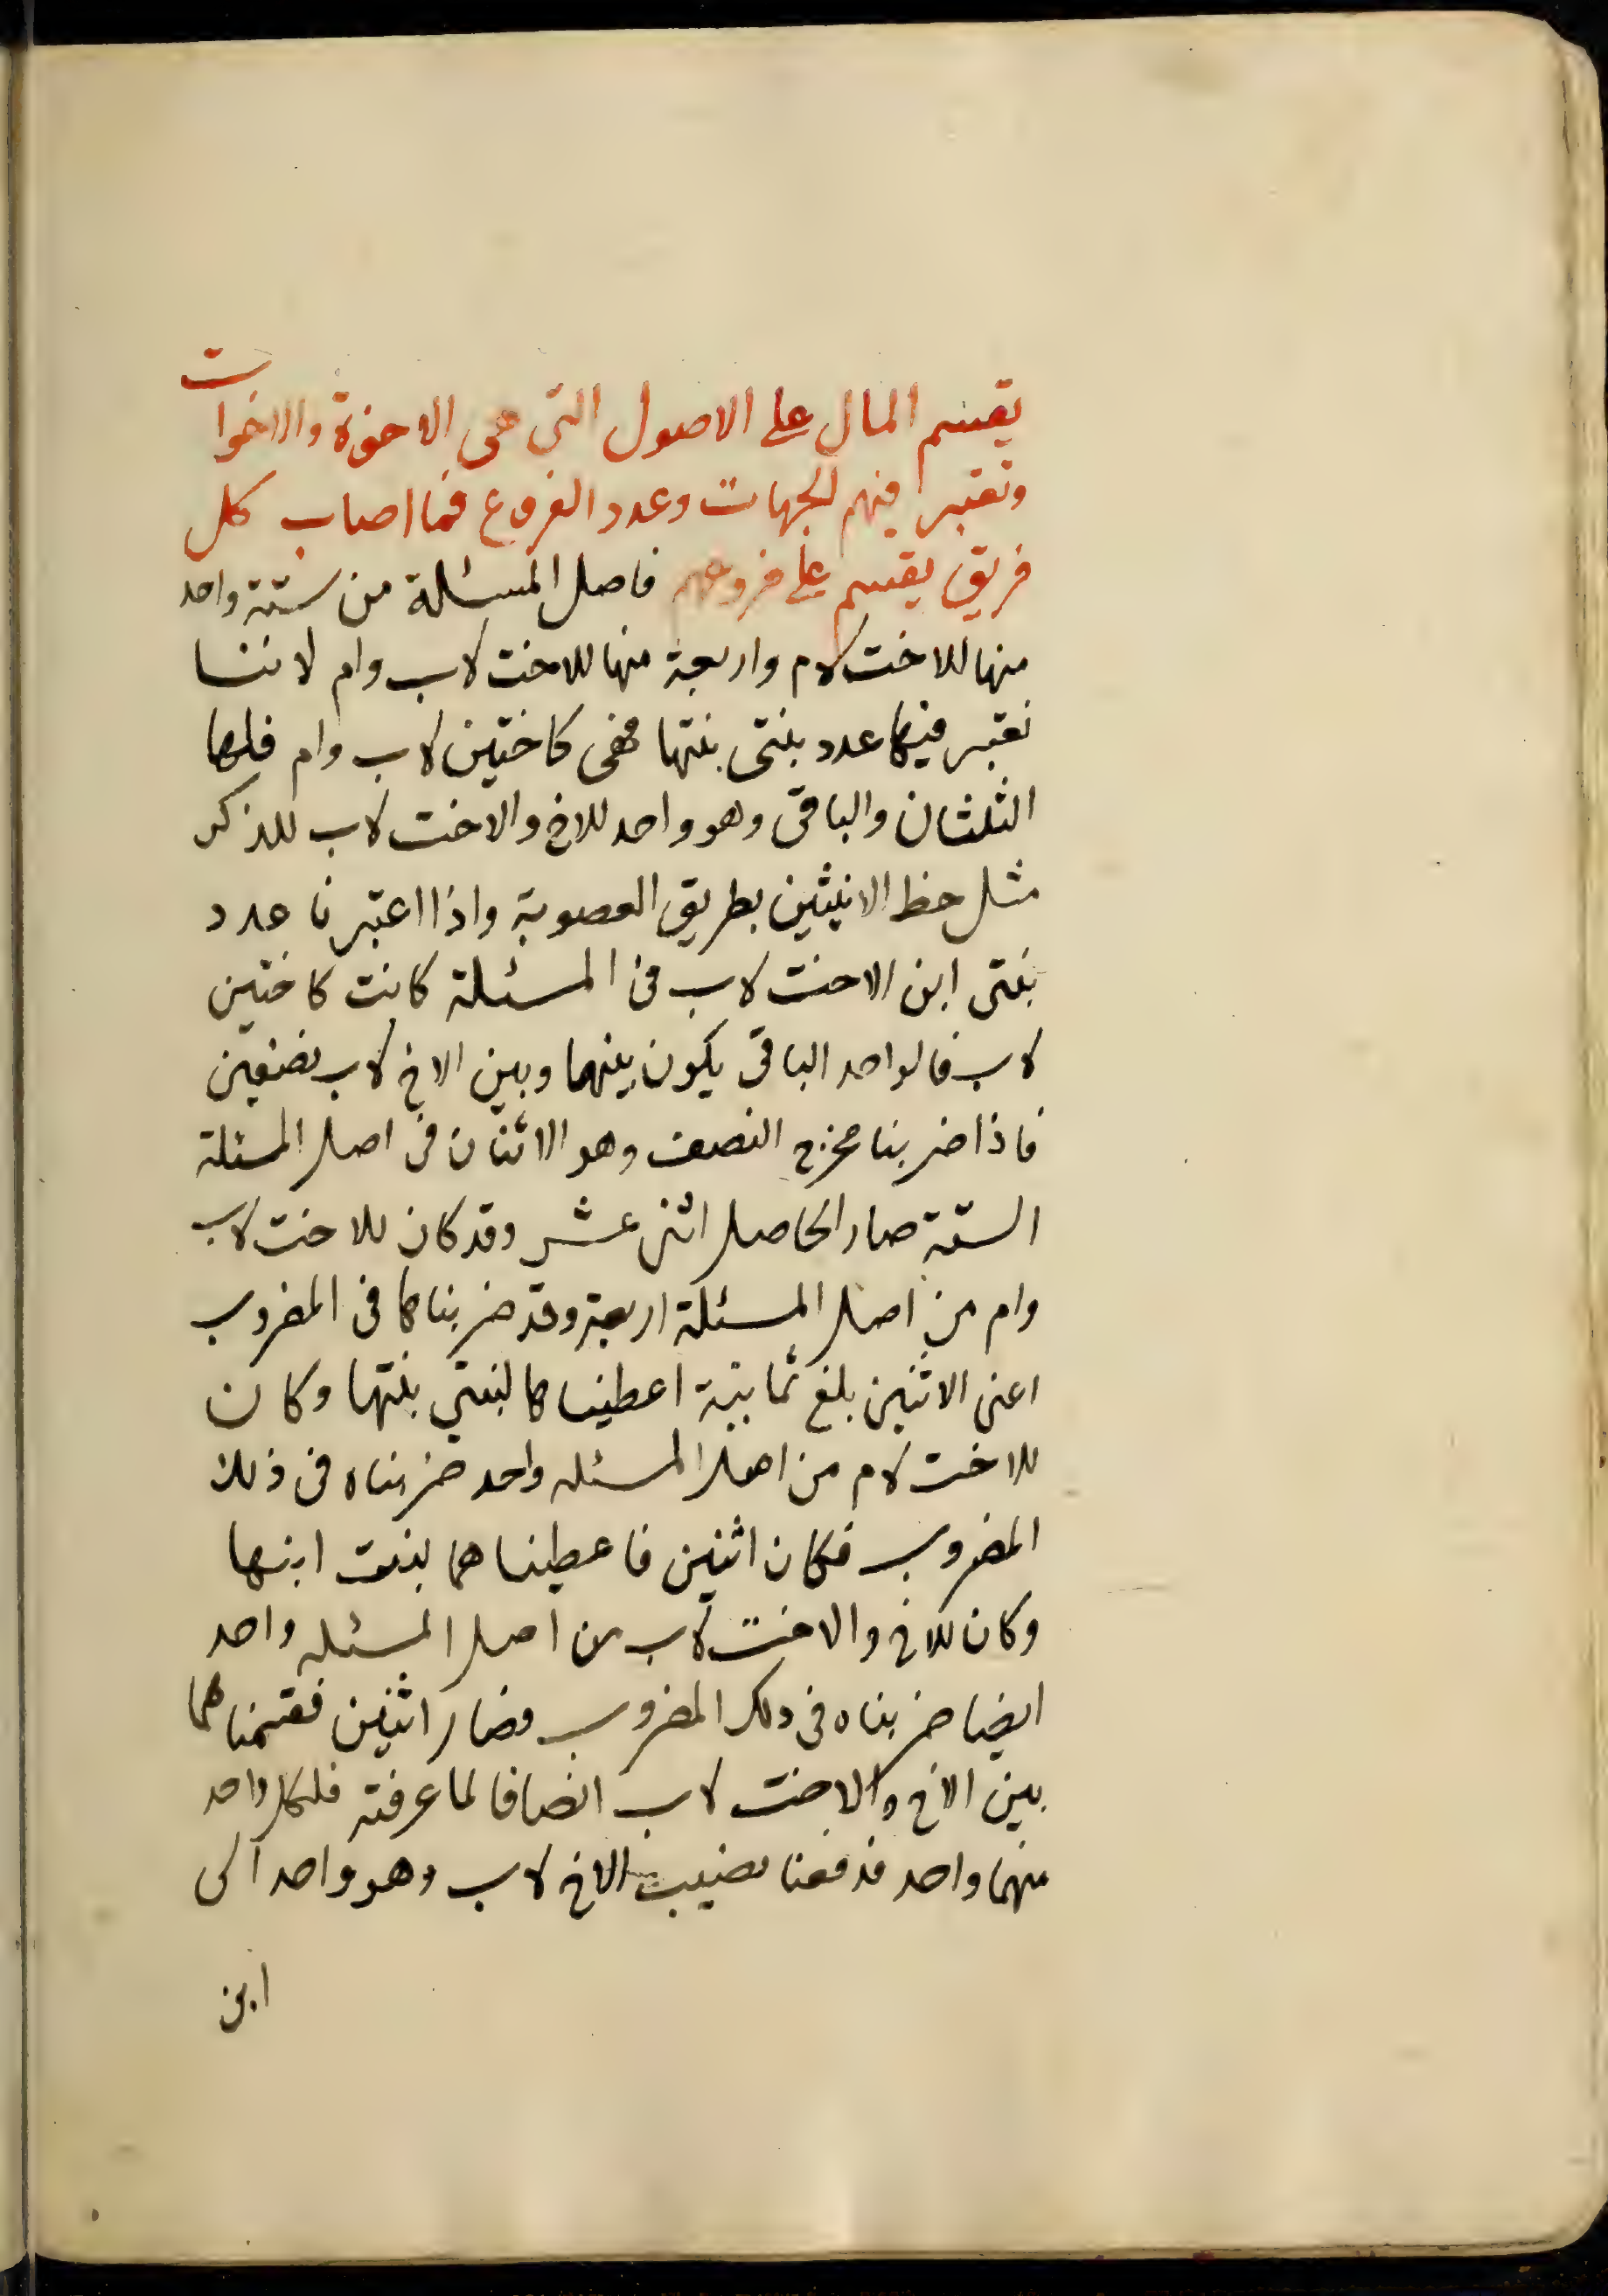 يقسم المال على الاصول التى هى الاخوة والاخوات
وتعتبر فيهم الجهات وعدد الفروع فما اصاب كل
فريق يقسم على فروعهم فاصل المسئلة من ستة واحد
منها للاخت لام واربعة منها للاخت لاب وام لاننا
نعتبر فيها عدد بنتى بنتها فهى كاختين لاب وام فلها
الثلثان والباقى وهو واحد للاخ والاخت لاب للذكر
مثل حظ الانثيين بطريق العصوبة واذا اعتبرنا عدد
بنتى ابن الاخت لاب فى المسئلة كانت كاختين
لاب فالواحد الباقى يكون بينهما وبين الاخ لاب نصفين
فاذا ضربنا مخرج النصف وهو الاثنان فى اصل المسئلة
الستة صار الحاصل اثنى عشر وقد كان للاخت لاب
وام من اصل المسئلة اربعة وقد ضربناها فى المضروب
اعنى الاثنين بلغ ثمانية اعطيناها لبنتى بنتها وكان
للاخت لام من اصل المسئله واحد ضربناه فى ذلك
المضروب فكان اثنين فاعطيناهما لبنت ابنها
وكان للاخ والاخت لاب من اصل المسئله واحد
ايضا ضربناه فى ذلك المضروب فصار اثنين فقسمناهما
بين الاخ والاخت لاب انصافا لما عرفته فلكل واحد
منهما واحد فدفعنا نصيب الاخ لاب وهو واحد الى
ابن